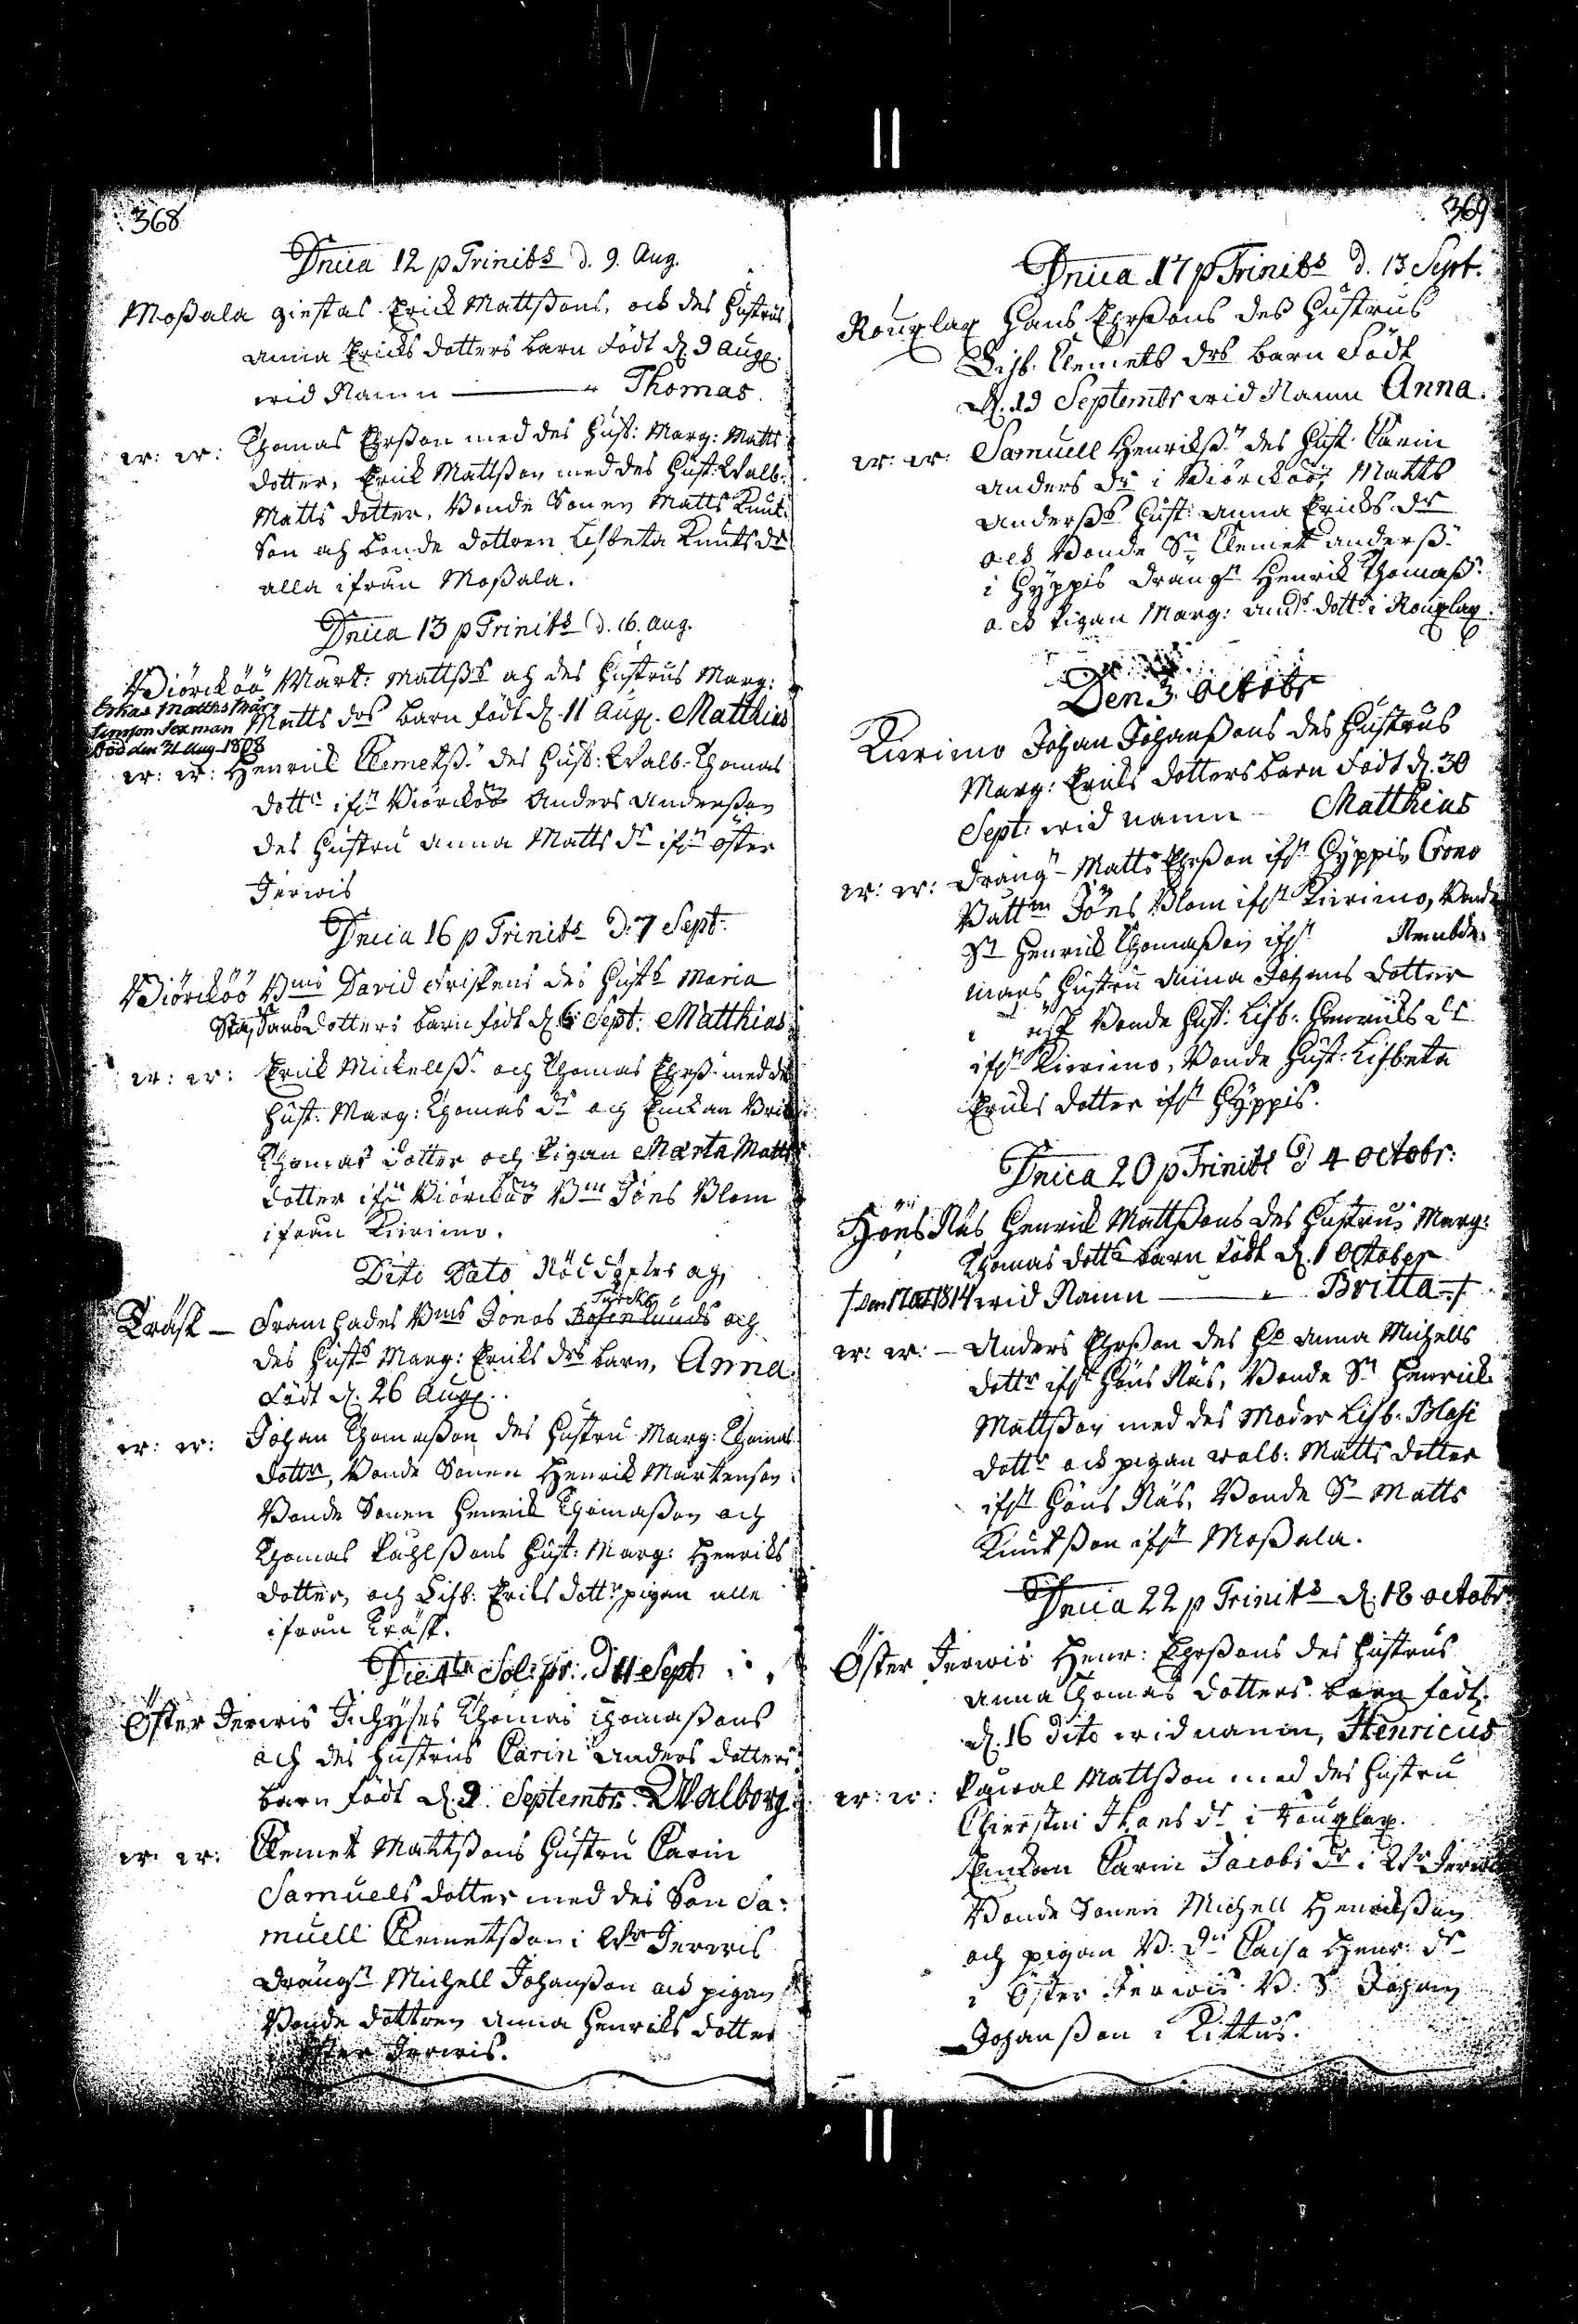 368
Dnica 12 p Trinits d. 9. Aug.
Moßala giestas Erick Mattßons, och des hustrus
Anna Ericks dotters barn födt d. 9 Aug.
wid Namn — Thomas.
w: w: Thomas Ehrßon med des hust: Marg: Matts
dotter, Erick Mattßon med des hust: Walb:
Matts dotter, Bonde Sonen Matts Knut
Son och bonde dottren Lisbeta Knuts dr
alla ifrån Moßala.
Dnica 13 p Trinits d. 16. Aug.
Biörcköö Mart: Mattßs och des hustrus Marg:
Matts drs barn födt d. 11 Aug. Matthias
Matths Mår
Simson Sexman
död den 21 Aug 1808
w: w: Henrick Clemetß: des hust: Walb: Thomas
dottr ifn Biörcköö Anders Anderßon
des hustru Anna Matts dr ifn öster
Jerwis
Dnica 16 p Trinits d. 7 Sept.
Biörcköö Bms David Friskens des husts Maria
dotters barn födt d. 6 Sept. Matthias
w: w: Erick Mickellß: och Thomas Ehrß: med des
hust: Marg: Thomas dr och Enckan Brita
Thomas dotter och Pigan Marta Matts
dotter ifn Biörcköö Bm Jöns Blom
ifrån Kurimo.
Dito Dato Nöddöptes och
Träsk — Framhades Bms Jonas Rosenlunds och
Tyrcks
des husts Marg: Ericks drs barn, Anna
Födt d. 26 Aug.
w: w: Johan Thomaßon des hustru Marg: Thomas
dottr, Bonde Sonen Henrick Mårtenson
Bonde Sonen Henrick Thomaßon och
Thomas Påhlßons hust: Marg: Henricks
dotter, och Lisb: Ericks dottr pigan alle
ifrån Träsk.
Die 4ta Sol. pr: d 11 Sept.
Öster Jerwis Inhyses Thomas Thomaßons
och des hustrus Carin Anders dotters
barn födt d. 9 Septembr. Walborg
w: w: Clemet Mattßons hustru Carin
Samuels dotter med des Son Sa:
muell Clemetßon i Wr Jerwis
drängn Michell Johanßon och pigan
Bonde dottren Anna Henricks dotter
Öster Jerwis.
369
Dnica 17 p Trinits d. 13 Sept.
Rouxlax Hans Ehrßons des hustrus
Lisb: Clemets drs barn Födt
d. 19 Septembr wid Namn Anna.
w: w: Samuell Henrickßn des hust. Carin
Anders dr i Biörcköö, Matts
Anderßs hust: Anna Ericks dr
och Bonde Sn Clemet Anderß:
i Hyppis drängn Henrick Thomaß:
och Pigan Marg: Ands dottr i Rouxlax.
Den 3 Octobr
Kurimo Johan Johanßons des hustrus
Marg: Ericks dotters barn Födt d. 30
Sept: wid namn Matthias
w: w: Drängn Matts Ehrßon ifn Hyppis, Crono
Båttm Jöns Blom ifn Kurimo, Bonde
Sn Henrick Thomaßon ifn
mans hustru Anna Johans dotter
i Bonde hust: Lisb: Henricks dr
ifn Kurimo, Bonde hust: Lisbeta
Ericks dotter ifn Hyppis.
Dnica 20 p Trinits d 4 Octobr:
Höns Näs Henrick Mattßons des hustrus Marg:
Thomas dottrs barn födt d. 1 October
† den 17 Oct 1814 wid Namn — Britta †
w: w: — Anders Ehrßon des hu Anna Michells
dottr ifn Höns Näs, Bonde Sn Henrick
Mattßon med des Moder Lisb: Blasi
dottr och pigan walb: Matts dotter
ifn Höns Näs, Bonde Sn Matts
Knutßon ifn Moßala.
Dnica 22 p Trinits d. 18 Octobr
Öster Jerwis Henr: Ehrßons des hustrus
Anna Thomas dotters barn födt
d. 16 dito wid namn, Henricus
w: w: Påwal Mattßon med des hustru
Chierstin Thoms dr i Rouxlax.
Enckan Carin Jacobs dr i Wr Jerwis
Bonde Sonen Michell Henrickßon
och pigan B: Dn Caisa Henr: dr
i Öster Jerwis B: S: Johan
Johanßon i Kittus.